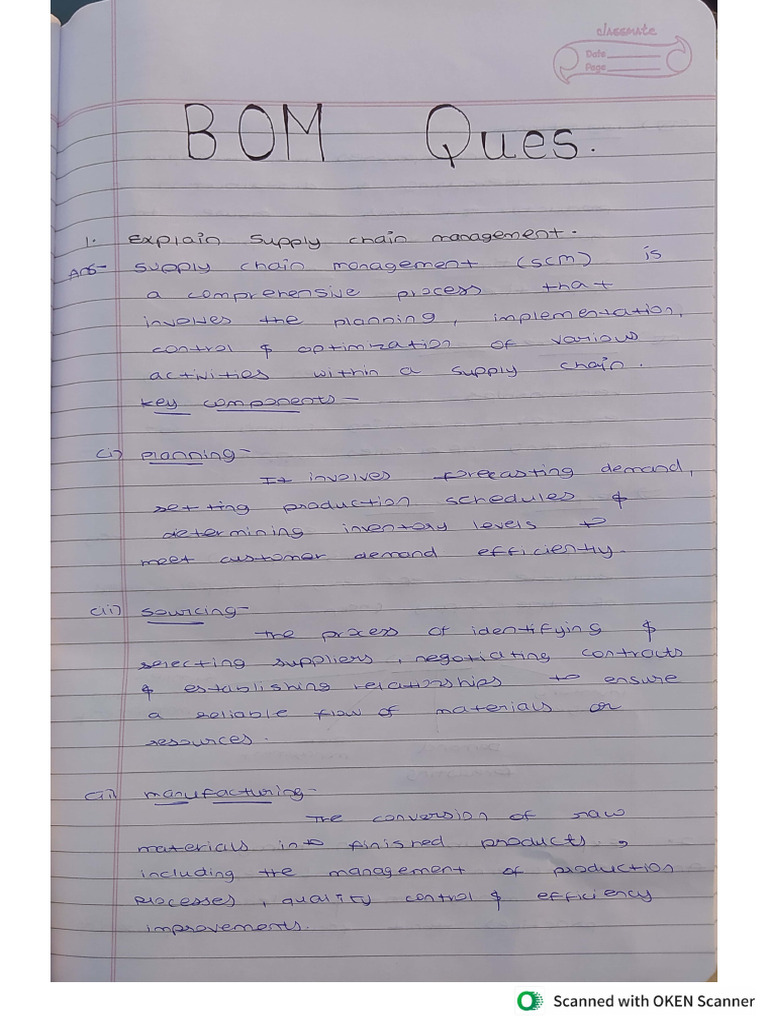 classmate
Date
Page
BOM Ques.
1. Explain supply chain management.
Ans- Supply chain management (SCM) is
a comprehensive process that
involves the planning, implementation,
control & optimization of various
activities within a supply chain.
key components -
(i) planning -
It involves forecasting demand,
setting production schedules &
determining inventory levels to
meet customer demand efficiently.
(ii) sourcing -
The process of identifying &
selecting suppliers, negotiating contracts
& establishing relationships to ensure
a reliable flow of materials or
resources.
(iii) manufacturing -
The conversion of raw
materials into finished products,
including the management of production
processes, quality control & efficiency
improvements.
Scanned with OKEN Scanner